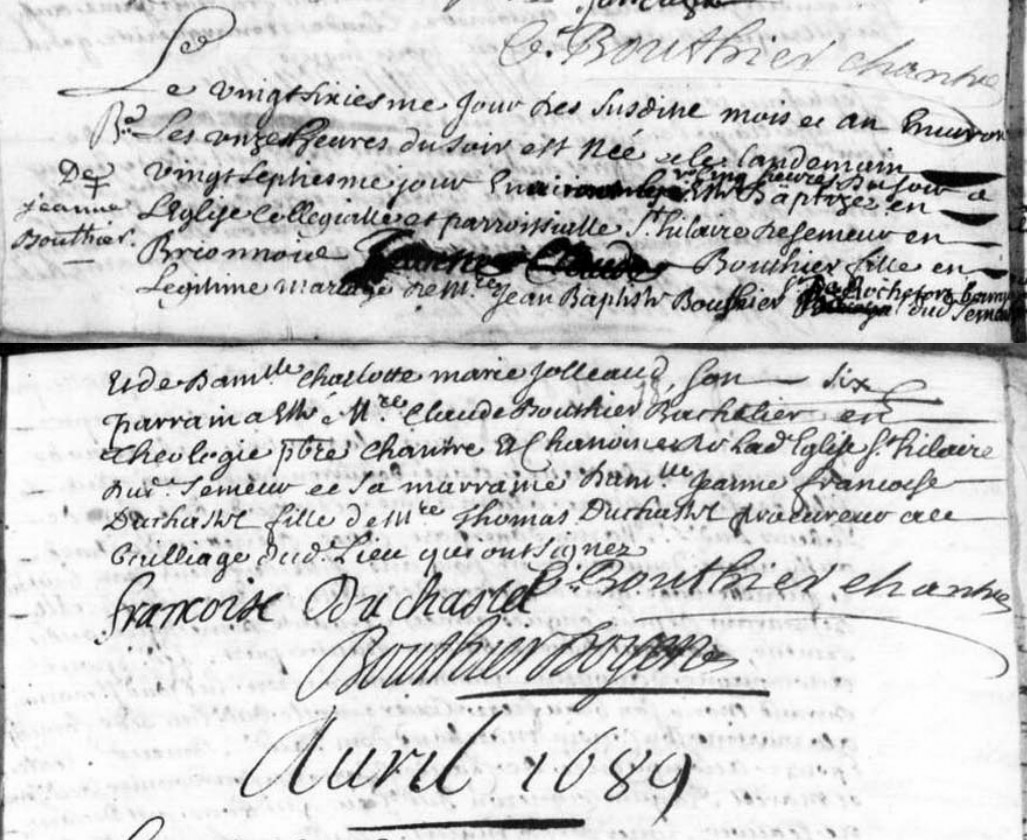 C. Bouthier chantre
Le vingtsixiesme jour des susdine mois et an Environ
Les onze heures du soir est Née et le landemain
Bae
De
jeanne
Bouthier.
cinq heures du soir a
vingtsephesme jour En Esté Baptizee en
L'Eglise Collegialle et parroissialle St hilaire de semeur en
Brionnoie Bouthier fille en
Legitime mariage de Mre Jean Baptiste Bouthier
De Rochefort
dud Semeur
Et de Damlle Charlotte marie Jolleaud, son six
parrain a Esté Mre Claude Bouthier Bachelier en
Theologie pbre Chantre Et Chanoine de Lad Eglise St hilaire
dud. Semeur et sa marraine Damlle jeanne francoise
Duchastel fille de Mre Thomas Duchastel procureur au
Bailliage dud. Lieu qui ont signez
francoise Duchastel C. Bouthier chantre
Bouthier doyen
Avril 1689